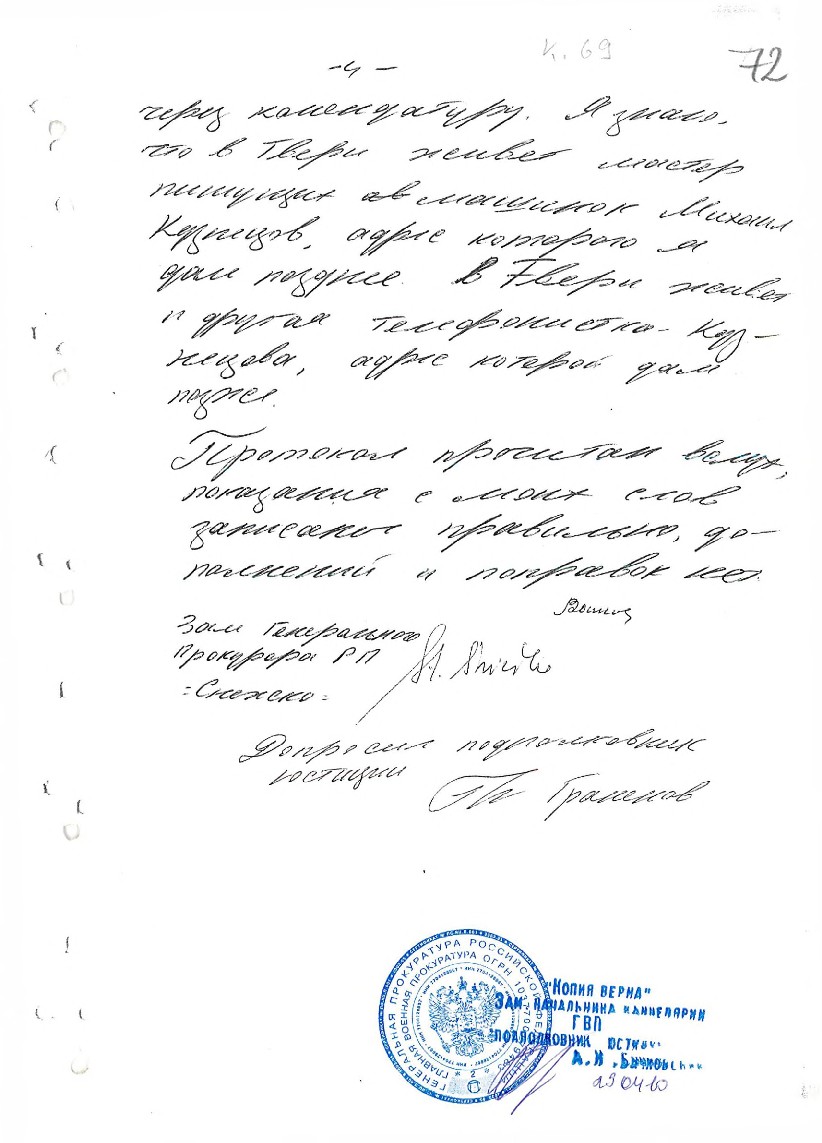 К. 69
72
- 4 -
через комендатуру. Я знаю,
что в Твери живет мастер
пишущих машинок Михаил
Кузнецов, адрес которого я
дам позднее. В Твери живет
и другая телефонистка - Куз-
нецова, адрес которой дам
позже.
Протокол прочитан вслух,
показания с моих слов
записаны правильно, до-
полнений и поправок нет.
Зам Генерального
Прокурора РП
=Снежко=
St. Śnieżko
Допросил подполковник
юстиции
Граненов
ГЕНЕРАЛЬНАЯ ПРОКУРАТУРА РОССИЙСКОЙ ФЕДЕРАЦИИ
ГЛАВНАЯ ВОЕННАЯ ПРОКУРАТУРА ОГРН
* 2 *
"КОПИЯ ВЕРНА"
ЗАМ. НАЧАЛЬНИКА КАНЦЕЛЯРИИ
ГВП
ПОДПОЛКОВНИК ЮСТИЦИИ